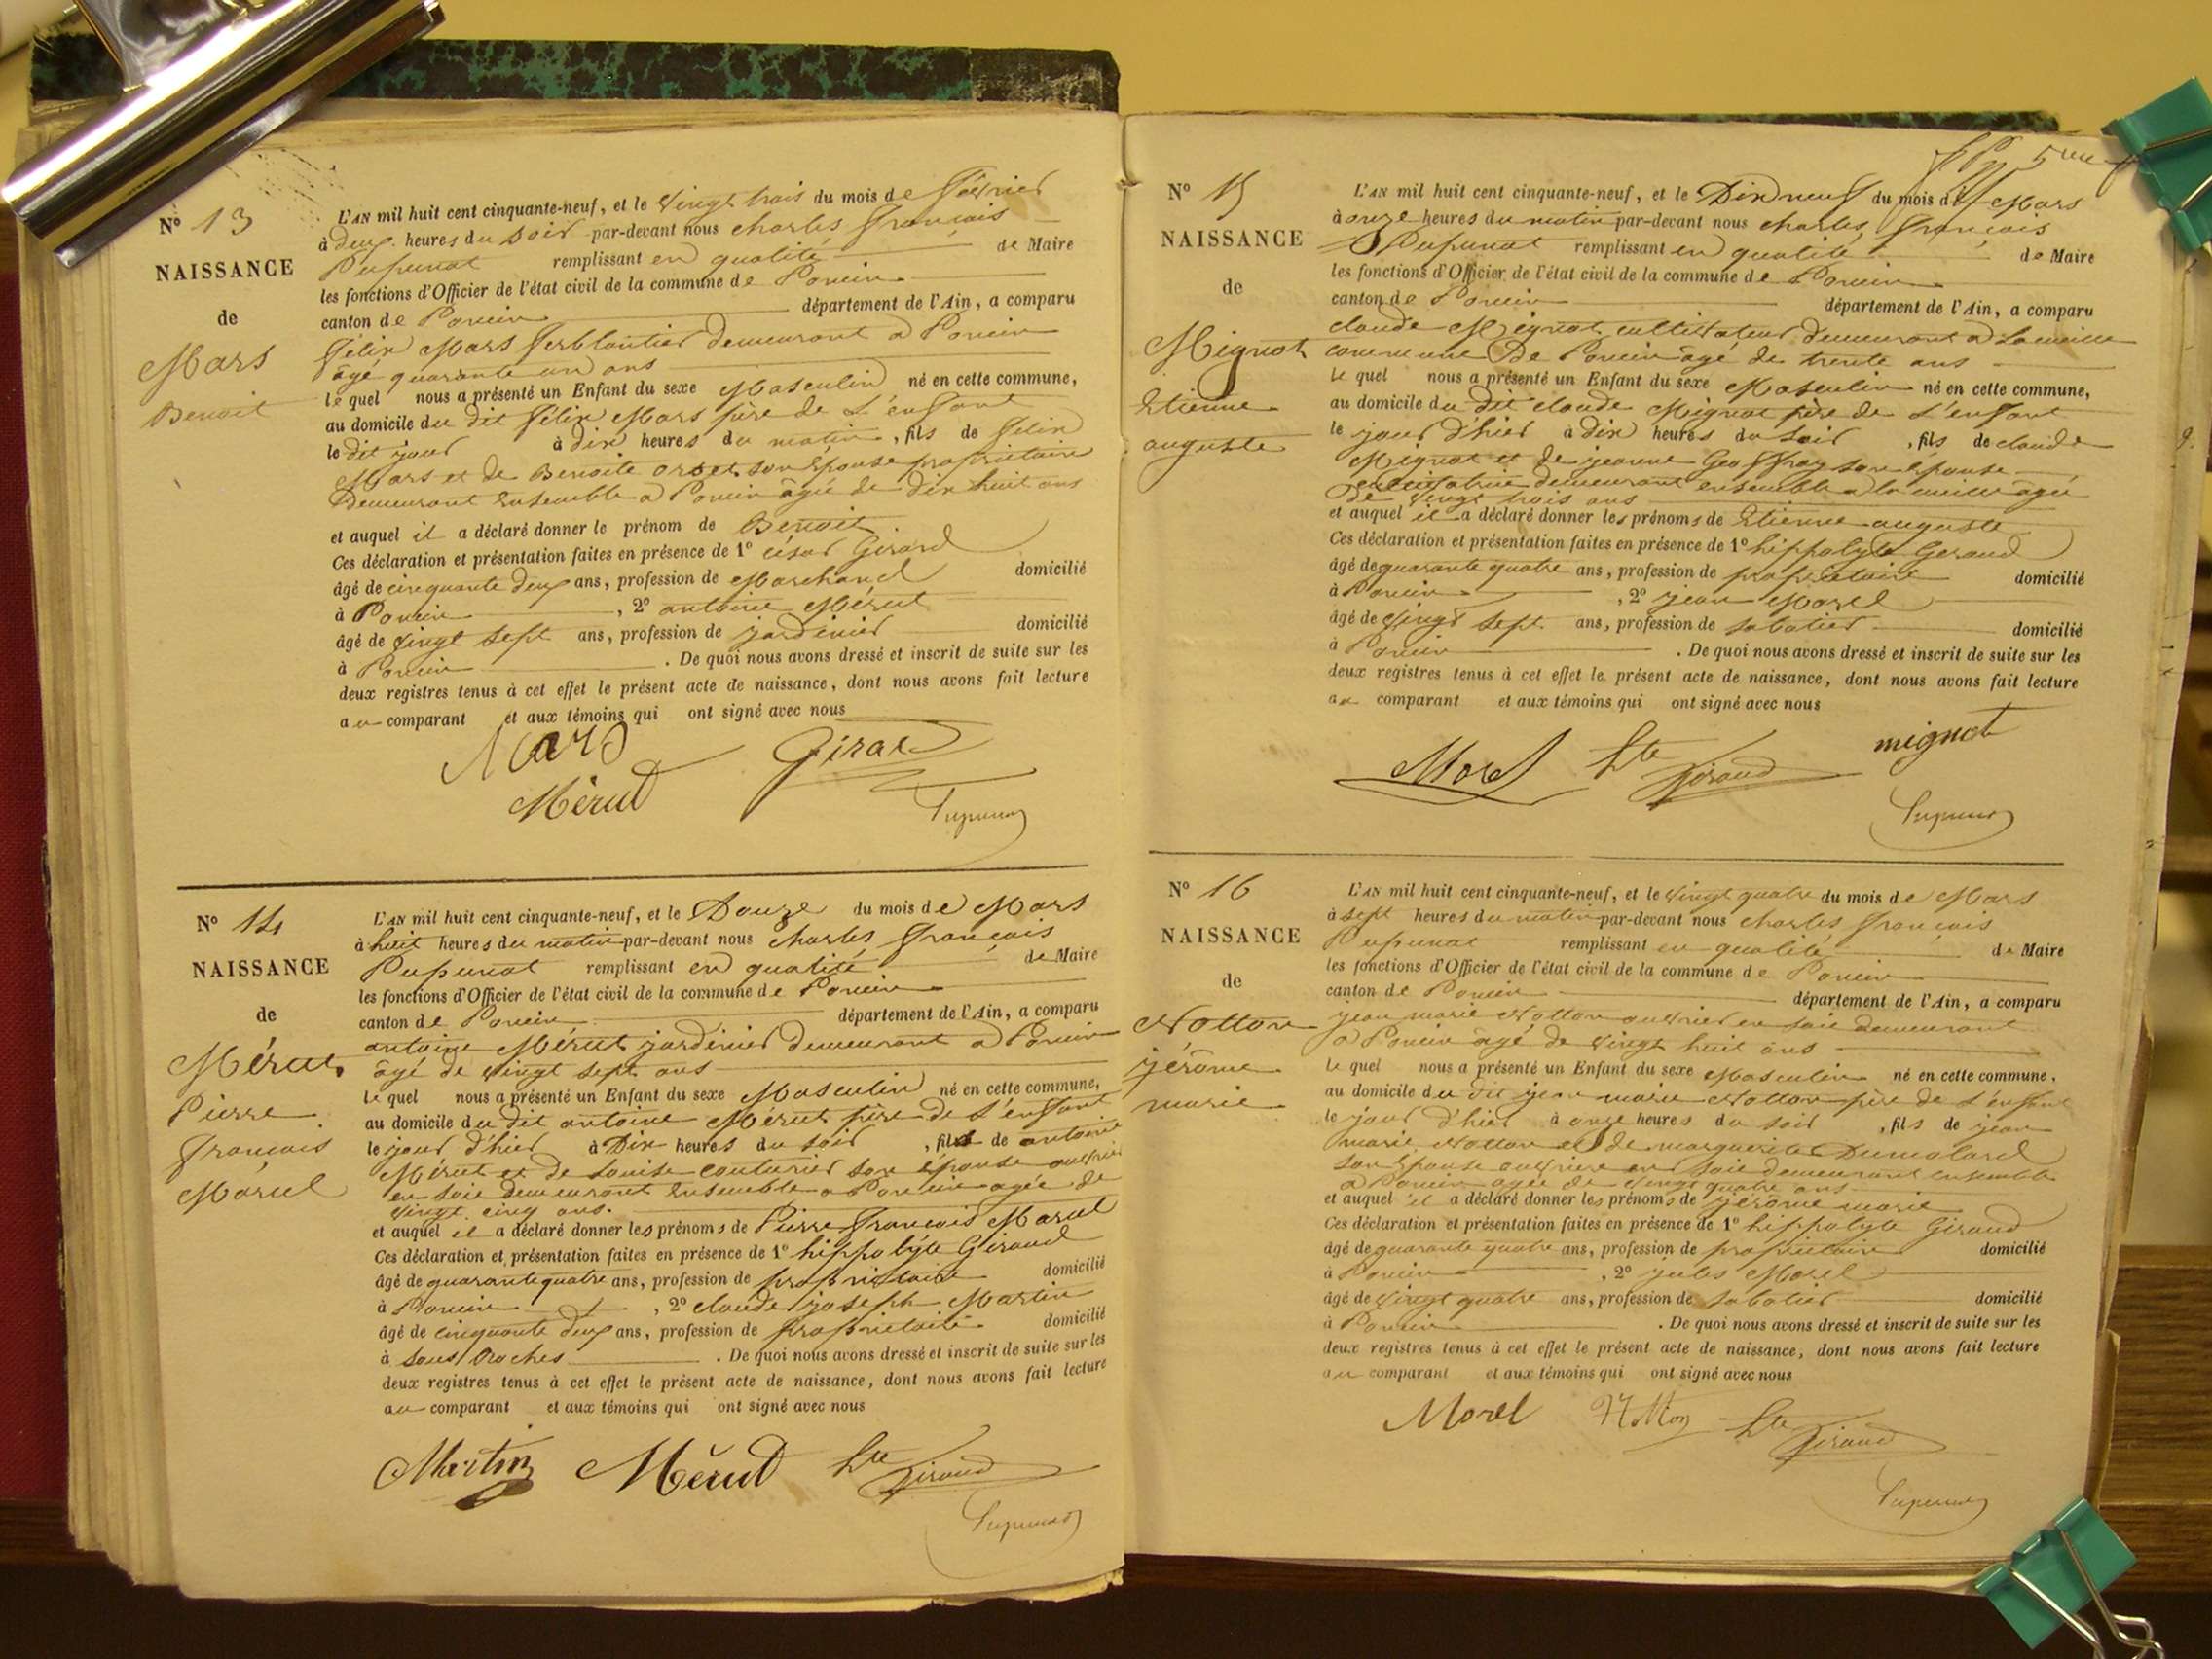 N° 13
NAISSANCE
de
Mars
Benoit
L'AN mil huit cent cinquante-neuf, et le vingt trois du mois de février
à deux heures du soir par-devant nous charles françois
Pupunat remplissant en qualité de Maire
les fonctions d'Officier de l'état civil de la commune de Poncin
canton de Poncin département de l'Ain, a comparu
félix Mars ferblantier demeurant a Poncin
âgé quarante un ans
le quel nous a présenté un Enfant du sexe Masculin né en cette commune,
au domicile du dit félix Mars père de L'enfant
le dit jour à dix heures du matin, fils de félix
Mars et de Benoite orset son épouse propriétaire
Demeurant Ensemble a Poncin âgée de dix huit ans
et auquel il a déclaré donner le prénom de Benoit
Ces déclaration et présentation faites en présence de 1° césar Girard
âgé de cinquante deux ans, profession de Marchand domicilié
à Poncin, 2° antoine Mérut
âgé de vingt sept ans, profession de jardinier domicilié
à Poncin. De quoi nous avons dressé et inscrit de suite sur les
deux registres tenus à cet effet le présent acte de naissance, dont nous avons fait lecture
au comparant et aux témoins qui ont signé avec nous
Mars Girard
Mérut
Pupunat
N° 14
NAISSANCE
de
Mérut
Pierre
françois
Marcel
L'AN mil huit cent cinquante-neuf, et le Douze du mois de Mars
à huit heures du matin par-devant nous charles françois
Pupunat remplissant en qualité de Maire
les fonctions d'Officier de l'état civil de la commune de Poncin
canton de Poncin département de l'Ain, a comparu
antoine Mérut jardinier demeurant a Poncin
âgé de vingt sept ans
le quel nous a présenté un Enfant du sexe Masculin né en cette commune,
au domicile du dit antoine Mérut père de L'enfant
le jour d'hier à Dix heures du soir, fils de antoine
Mérut et de Louise couturier son épouse ouvrière
en soie demeurant Ensemble a Poncin agée de
vingt cinq ans.
et auquel il a déclaré donner les prénoms de Pierre françois Marcel
Ces déclaration et présentation faites en présence de 1° hippolyte Giraud
âgé de quarante quatre ans, profession de propriétaire domicilié
à Poncin, 2° claude joseph Martin
âgé de cinquante deux ans, profession de propriétaire domicilié
à Sous Roches. De quoi nous avons dressé et inscrit de suite sur les
deux registres tenus à cet effet le présent acte de naissance, dont nous avons fait lecture
au comparant et aux témoins qui ont signé avec nous
Martin Mérut Hte Giraud
Pupunat
5me
N° 15
NAISSANCE
de
Mignot
Etienne
auguste
L'AN mil huit cent cinquante-neuf, et le Dix neuf du mois de Mars
à onze heures du matin par-devant nous charles françois
Pupunat remplissant en qualité de Maire
les fonctions d'Officier de l'état civil de la commune de Poncin
canton de Poncin département de l'Ain, a comparu
claude Mignot cultivateur demeurant a
commune De Poncin âgé de trente ans
le quel nous a présenté un Enfant du sexe Masculin né en cette commune,
au domicile du dit claude Mignot père de L'enfant
le jour d'hier à dix heures du soir, fils de claude
Mignot et de jeanne Geoffray son épouse
cultivatrice demeurant ensemble a agée
de vingt trois ans
et auquel il a déclaré donner les prénoms de Etienne auguste
Ces déclaration et présentation faites en présence de 1° hippolyte Geraud
âgé de quarante quatre ans, profession de propriétaire domicilié
à Poncin, 2° jean Morel
âgé de vingt sept ans, profession de sabotier domicilié
à Poncin. De quoi nous avons dressé et inscrit de suite sur les
deux registres tenus à cet effet le présent acte de naissance, dont nous avons fait lecture
au comparant et aux témoins qui ont signé avec nous
Morel Hte Giraud mignot
Pupunat
N° 16
NAISSANCE
de
Notton
jérôme
marie
L'AN mil huit cent cinquante-neuf, et le vingt quatre du mois de Mars
à sept heures du matin par-devant nous charles françois
Pupunat remplissant en qualité de Maire
les fonctions d'Officier de l'état civil de la commune de Poncin
canton de Poncin département de l'Ain, a comparu
jean marie Notton ouvrier en soie demeurant
a Poncin âgé de vingt huit ans
le quel nous a présenté un Enfant du sexe Masculin né en cette commune,
au domicile du dit jean marie Notton père de L'enfant
le jour d'hier à onze heures du soir, fils de jean
marie Notton et de marguerite Dumolard
son épouse ouvrière en soie demeurant ensemble
a Poncin agée de vingt quatre ans
et auquel il a déclaré donner les prénoms de jérôme marie
Ces déclaration et présentation faites en présence de 1° hippolyte Giraud
âgé de quarante quatre ans, profession de propriétaire domicilié
à Poncin, 2° jules Morel
âgé de vingt quatre ans, profession de sabotier domicilié
à Poncin. De quoi nous avons dressé et inscrit de suite sur les
deux registres tenus à cet effet le présent acte de naissance, dont nous avons fait lecture
au comparant et aux témoins qui ont signé avec nous
Morel Notton Hte Giraud
Pupunat